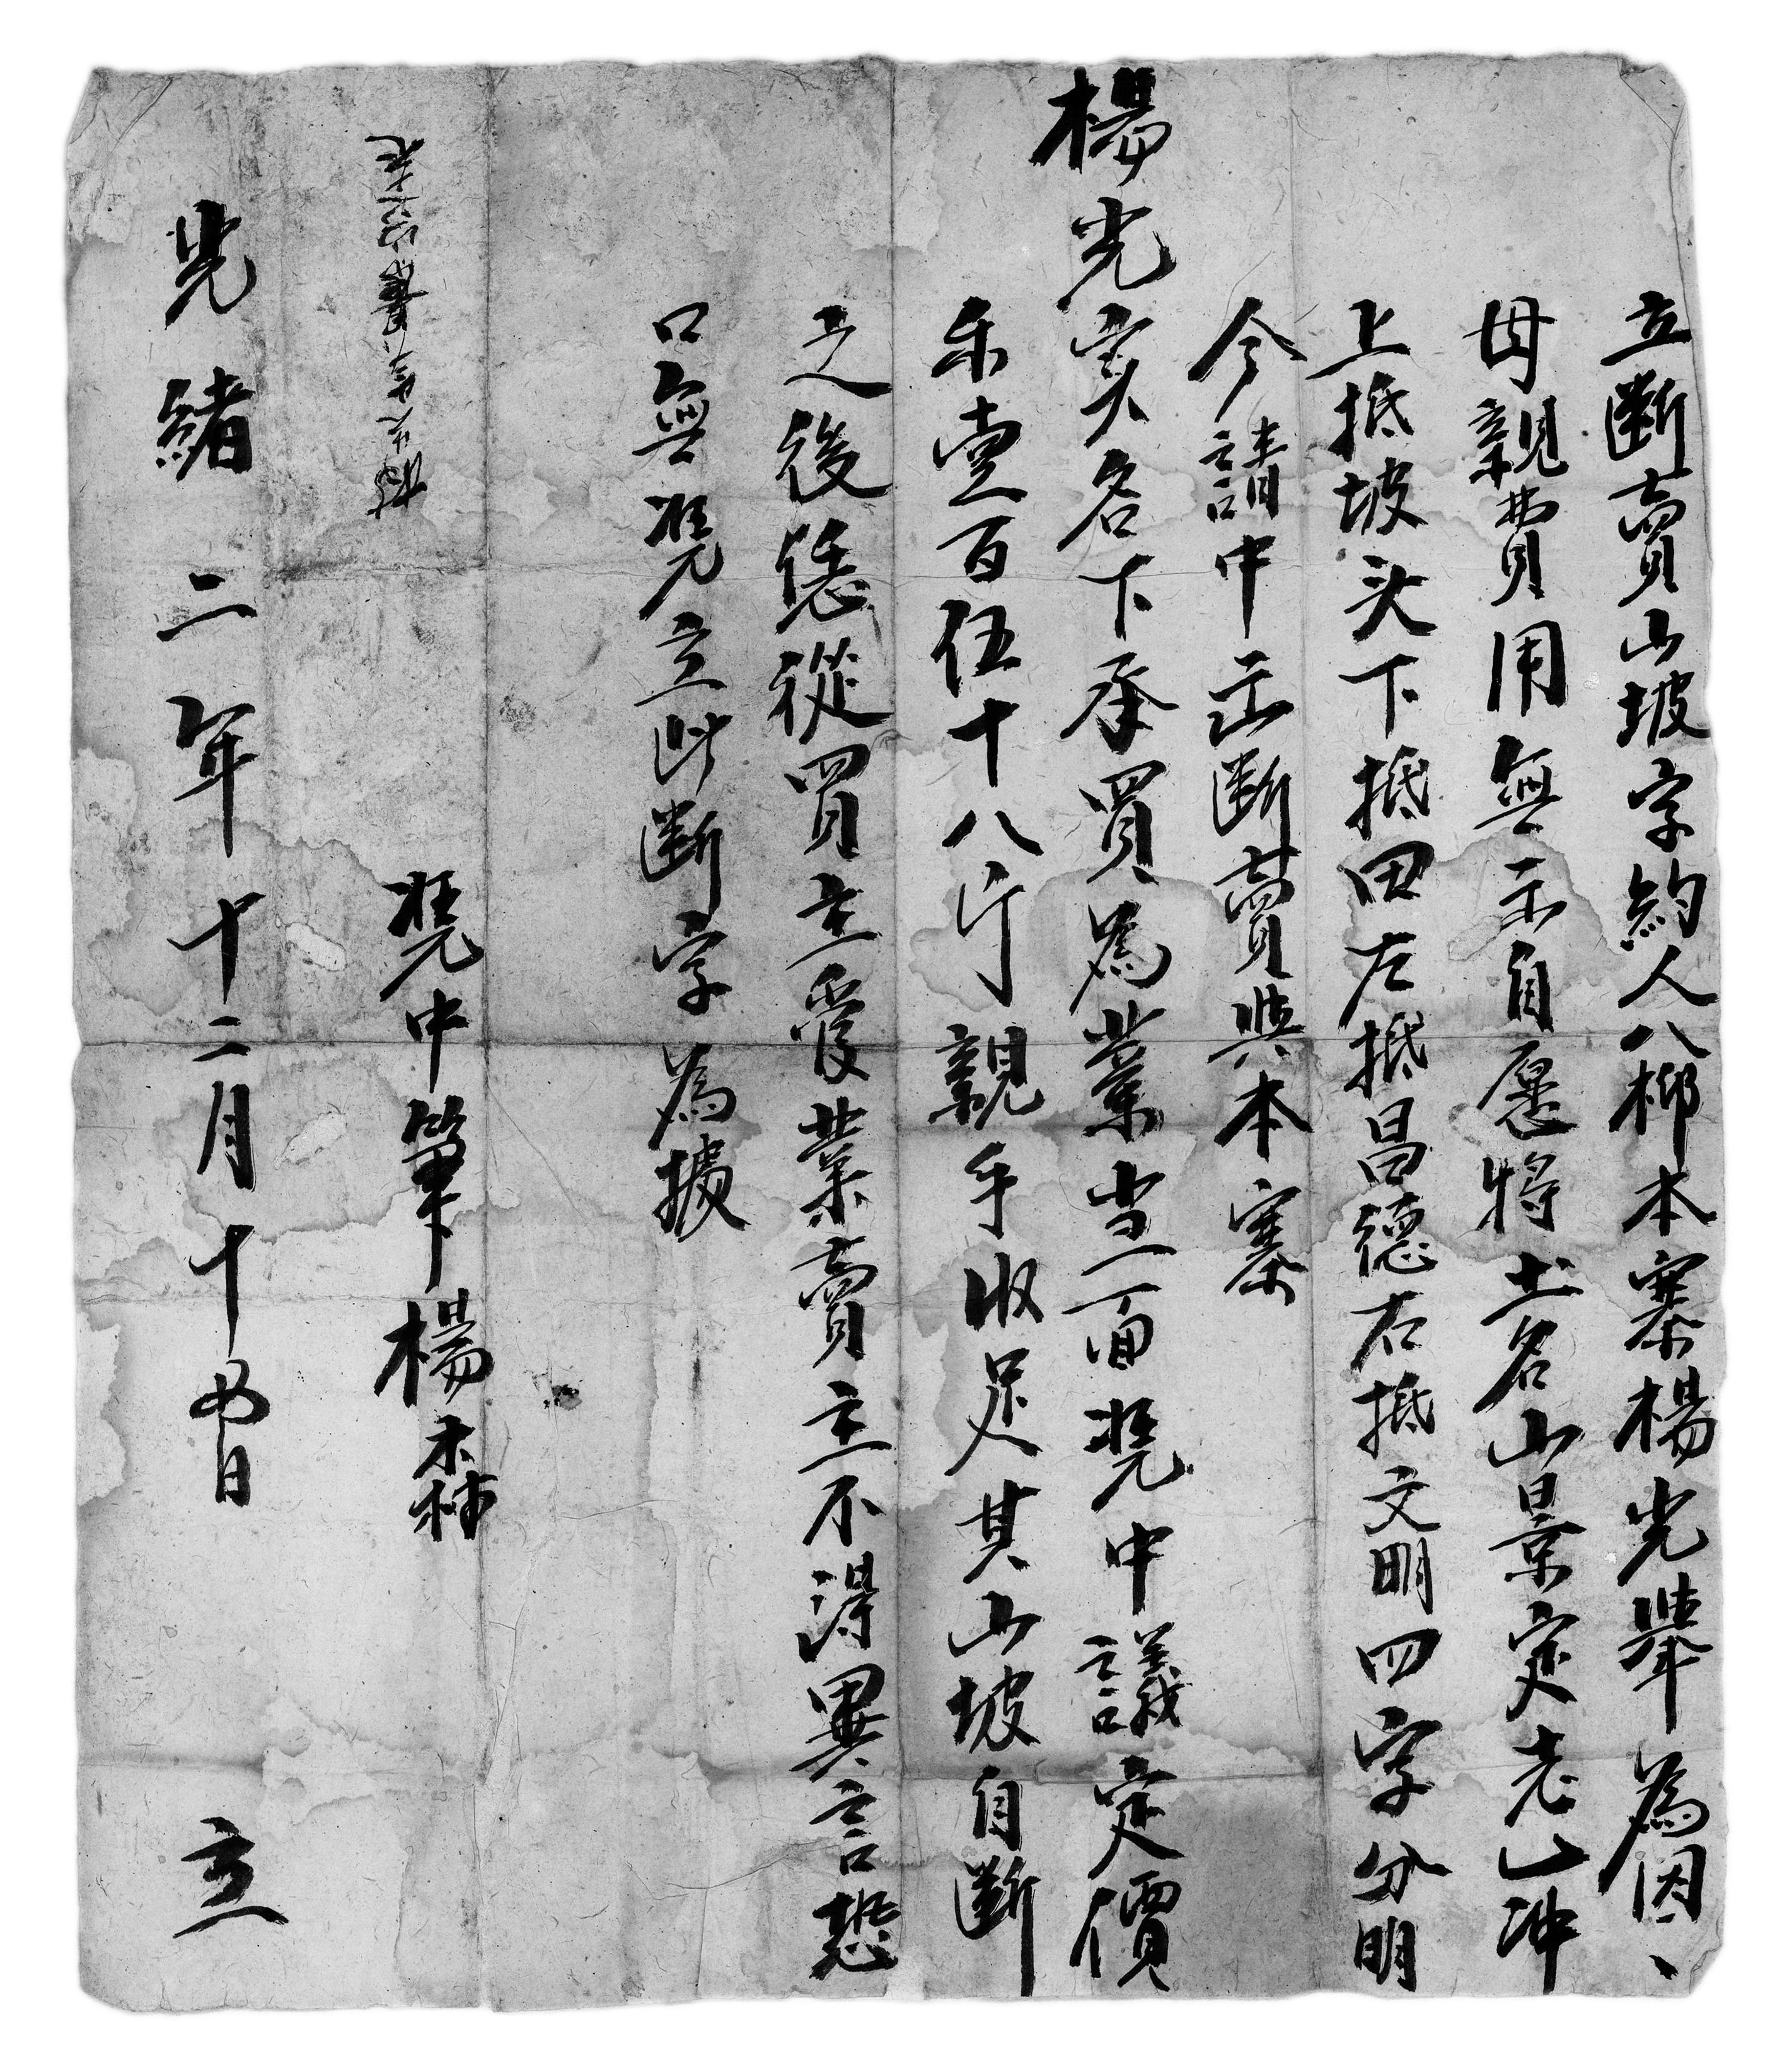 立断賣山坡字約人八柳本寨楊光舉為因、
母親費用無出自愿将土名山景定老山冲
上抵坡头下抵田左抵昌德右抵文明四字分明
今請中出断賣與本寨
楊光实名下承買為業當面凴中議定價
禾壹百伍十八斤親手收足其山坡自断
之後恁從買主管業賣主不淂異言恐
口無凴立此断字為據
凴中筆楊
光緒二年十二月十五日立